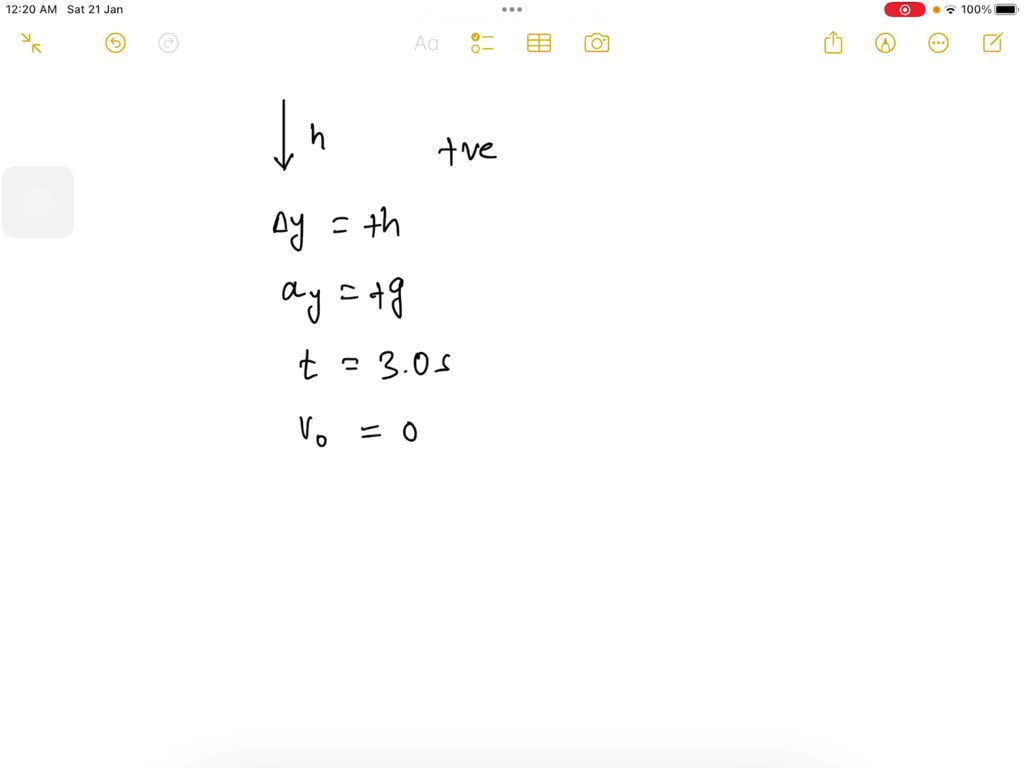 12:20 AM Sat 21 Jan
100%
Aa
h +ve
Δy = +h
ay = +g
t = 3.0s
v0 = 0